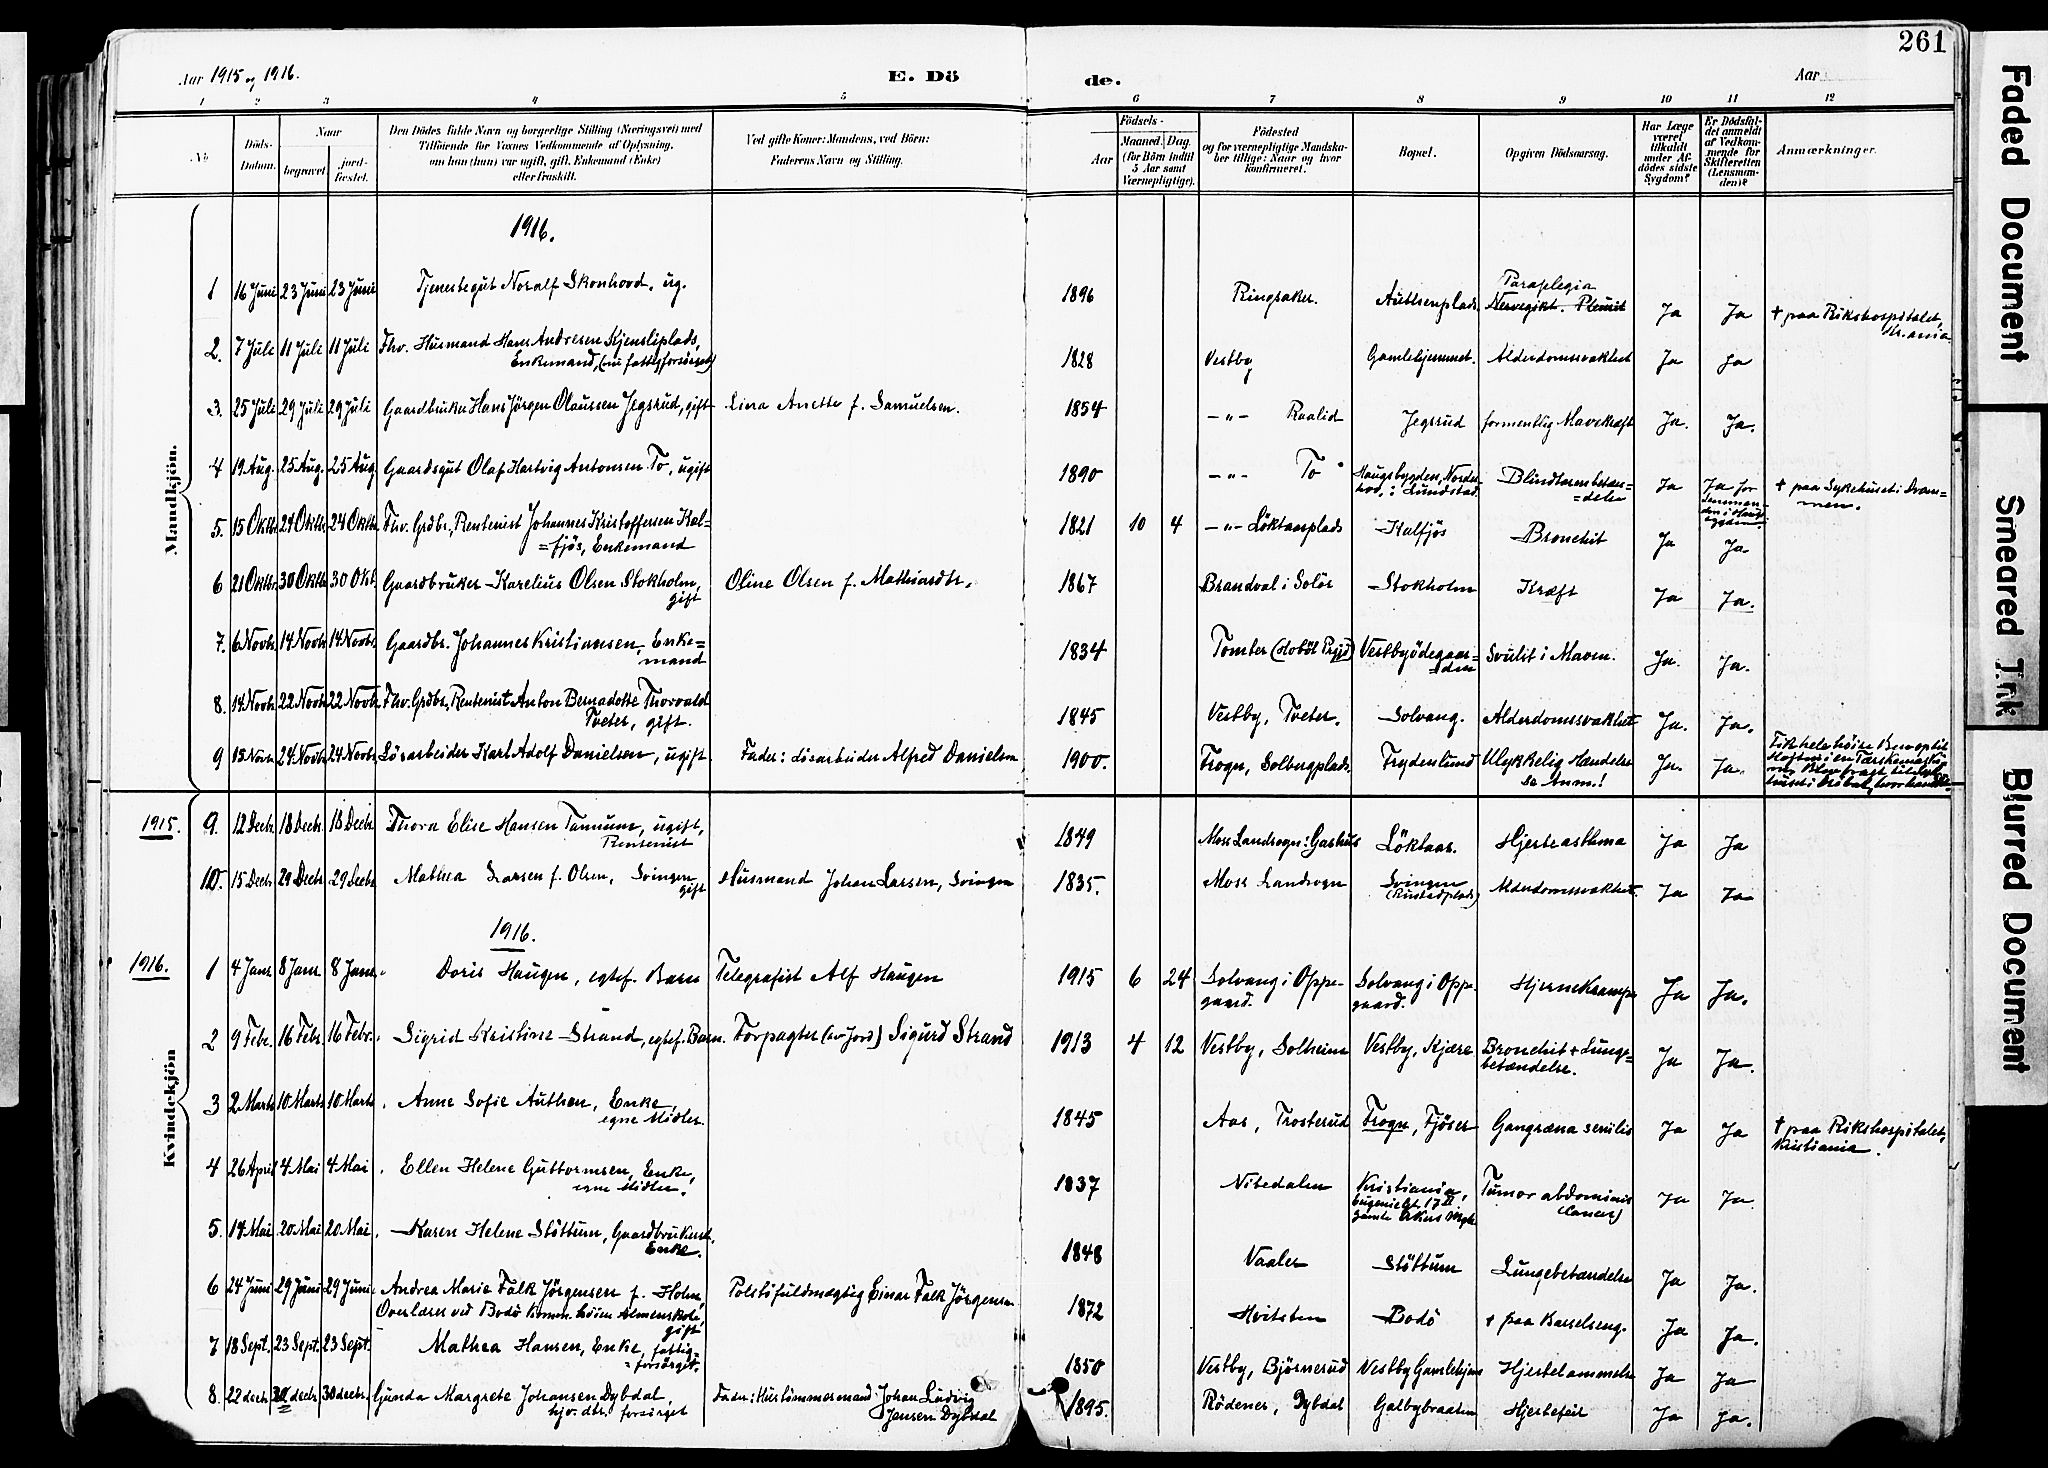 261
Aar 1915 og 1916.
E. Dö
de.
Aar
1 2 3 4 5 6 7 8 9 10 11 12
No
Döds-Datum.
Naar
begravet
jordfæstet.
Den Dödes fulde Navn og borgerlige Stilling (Næringsvei) med
Tilföiende for Voxnes Vedkommende af Oplysning,
om han (hun) var ugift, gift, Enkemand (Enke)
eller fraskilt.
Ved gifte Koner: Mandens, ved Börn:
Faderens Navn og Stilling.
Födsels-
Aar
Maaned. Dag.
(for Börn indtil
5 Aar samt
Værnepligtige).
Födested
og for værnepligtige Mandska-
ber tillige: Naar og hvor
konfirmeret.
Bopæl.
Opgiven Dödsaarsag.
Har Læge
været
tilkaldt
under Af-
dödes sidste
Sygdom?
Er Dödsfal-
det anmeldt
af Vedkom-
mende for
Skifteretten
(Lensman-
den)?
Anmærkninger.
Mandkjön.
1916.
1 16 Juni 23 Juni 23 Juni Tjenestegut Noralf Skonhovd, ug. 1896 Ringsaker. Authenplads. Paraplegia Nervegikt. Pleurit Ja Ja † paa Rikshospitalet,
Kr.ania
2. 7 Juli 11 Juli 11 Juli Fhv. Husmand Hans Andresen Kjensliplads,
Enkemand, (nu fattigforsörget) 1828 Vestby Gamlehjemmet. Alderdomssvakhet Ja Ja
3. 25 Juli 29 Juli 29 Juli Gaardbruker Hans Jörgen Olaussen Jegsrud, gift Lina Anette f. Samuelsen. 1854 -„- Raalid Jegsrud formentlig Mavekræft Ja. Ja.
4 19 Aug. 25 Aug. 25 Aug Gaardsgut Olaf Hartvig Antonsen To, ugift 1890 -„- To Haugsbygden, Norder-
hov, i Lundstad. Blindtarmbetæn-
=delse Ja Ja for
Lensman-
den i † paa Sykehuset i Dram=
men.
5. 15 Oktbr. 24 Oktbr. 24 Oktbr. Fhv. Grdbr., Rentenist Johannes Kristoffersen Kal=
=fjös, Enkemand 1821 10 4 -„- Löktaasplads Kalfjös Bronchit Ja Ja.
6 21 Oktbr. 30 Oktbr. 30 Okt. Gaardbruker Karelius Olsen Stokholm,
gift Oline Olsen f. Mathiasdtr. 1867 Brandval i Solör Stokholm Kræft Ja Ja.
7. 6 Novbr. 14 Novbr. 14 Novbr. Gaardbr. Johannes Kristiansen, Enke=
mand 1834 Tomter (Hobøl Prgjd) Vestbyödegaar=
den Svulst i Maven. Ja. Ja.
8. 14 Novbr. 22 Novbr. 22 Novbr. Fhv. Grdbr., Rentenist Anton Bernadotte Thorvald
Tveter, gift. 1845 Vestby, Tveter. Solvang. Alderdomssvakhet Ja. Ja.
9 15 Novbr. 24 Novbr. 24 Novbr. Lösarbeider Karl Adolf Danielsen, ugift Fader: Lösarbeider Alfred Danielsen 1900. Frogn, Solbergplads. Frydenlund Ulykkelig Hændelse
Se Anm.! Ja. Ja. Fik hele höire Ben op til
Hoften i en Tærskemaskin
Kvindekjön
1915.
9. 12 Decbr 18 Decbr 18 Decbr Thora Elise Hansen Tannum, ugift,
Rentenist 1849 Moss Landsogn: Gashus Löktaas. Hjerteasthma Ja Ja
10. 15 Decbr 29 Decbr 29 Decbr Mathea Larsen f. Olsen, Svingen
gift Husmand Johan Larsen, Svingen 1835. Moss Landsogn Svingen
(Rustadplads) Alderdomssvakhet. Ja Ja
1916.
1916.
1 4 Janr 8 Janr 8 Janr. Doris Haugen, egtef. Barn Telegrafist Alf Haugen 1915 6 24 Solvang i Oppe-
gaard. Solvang i Oppe-
gaard. Hjernekrampe Ja Ja.
2 9 Febr. 16 Febr. 16 Febr. Sigrid Kristine Strand, egtef. Barn. Forpagter (av Jord) Sigurd Strand 1913 4 12 Vestby, Solheim Vestby, Kjære Bronchit + Lunge-
betændelse. Ja Ja.
3 2 Marts 10 Marts 10 Marts. Anne Sofie Authen, Enke,
egne Midler. 1845 Aas, Trosterud Frogn, Fjöser Gangræna senilis Ja Ja † paa Rikshospitalet,
Kristiania.
4 26 April 4 Mai 4 Mai. Ellen Helene Guttormsen, Enke,
egne Midler. 1837 Nitedalen Kristiania,
Eugenie Gt. 17 II
Gamle Akers Mgh. Tumor abdominis
(Cancer) Ja Ja.
5. 14 Mai 20 Mai 20 Mai. Karen Helene Stöttum, Gaardbrukerst.
Enke. 1848 Vaaler Stöttum Lungebetændelse Ja Ja.
6 24 Juni 29 Juni 29 Juni. Andrea Marie Falk Jörgensen f. Holm,
Overlærer ved Bodö Komm. höiere Almenskole,
gift Politifuldmægtig Einar Falk Jörgensen 1872 Hvitsten Bodö † paa Barselseng. Ja Ja.
7 18 Sept. 23 Sept. 23 Sept. Mathea Hansen, Enke, fattig-
=forsörget. 1850 Vestby, Björnerud Vestby Gamlehjem Hjertelammelse Ja Ja
8. 22 decbr. 30 decbr. 30 decbr. Gunda Margrete Johansen Dybdal,
hjv. dtr., forsörget Fader: Hustömmermand Johan Ludvig
Jansen Dybdal 1895. Rödenes, Dybdal Galbybraaten Hjertefeil Ja Ja.
Faded Document
Smeared Ink
Blurred Document